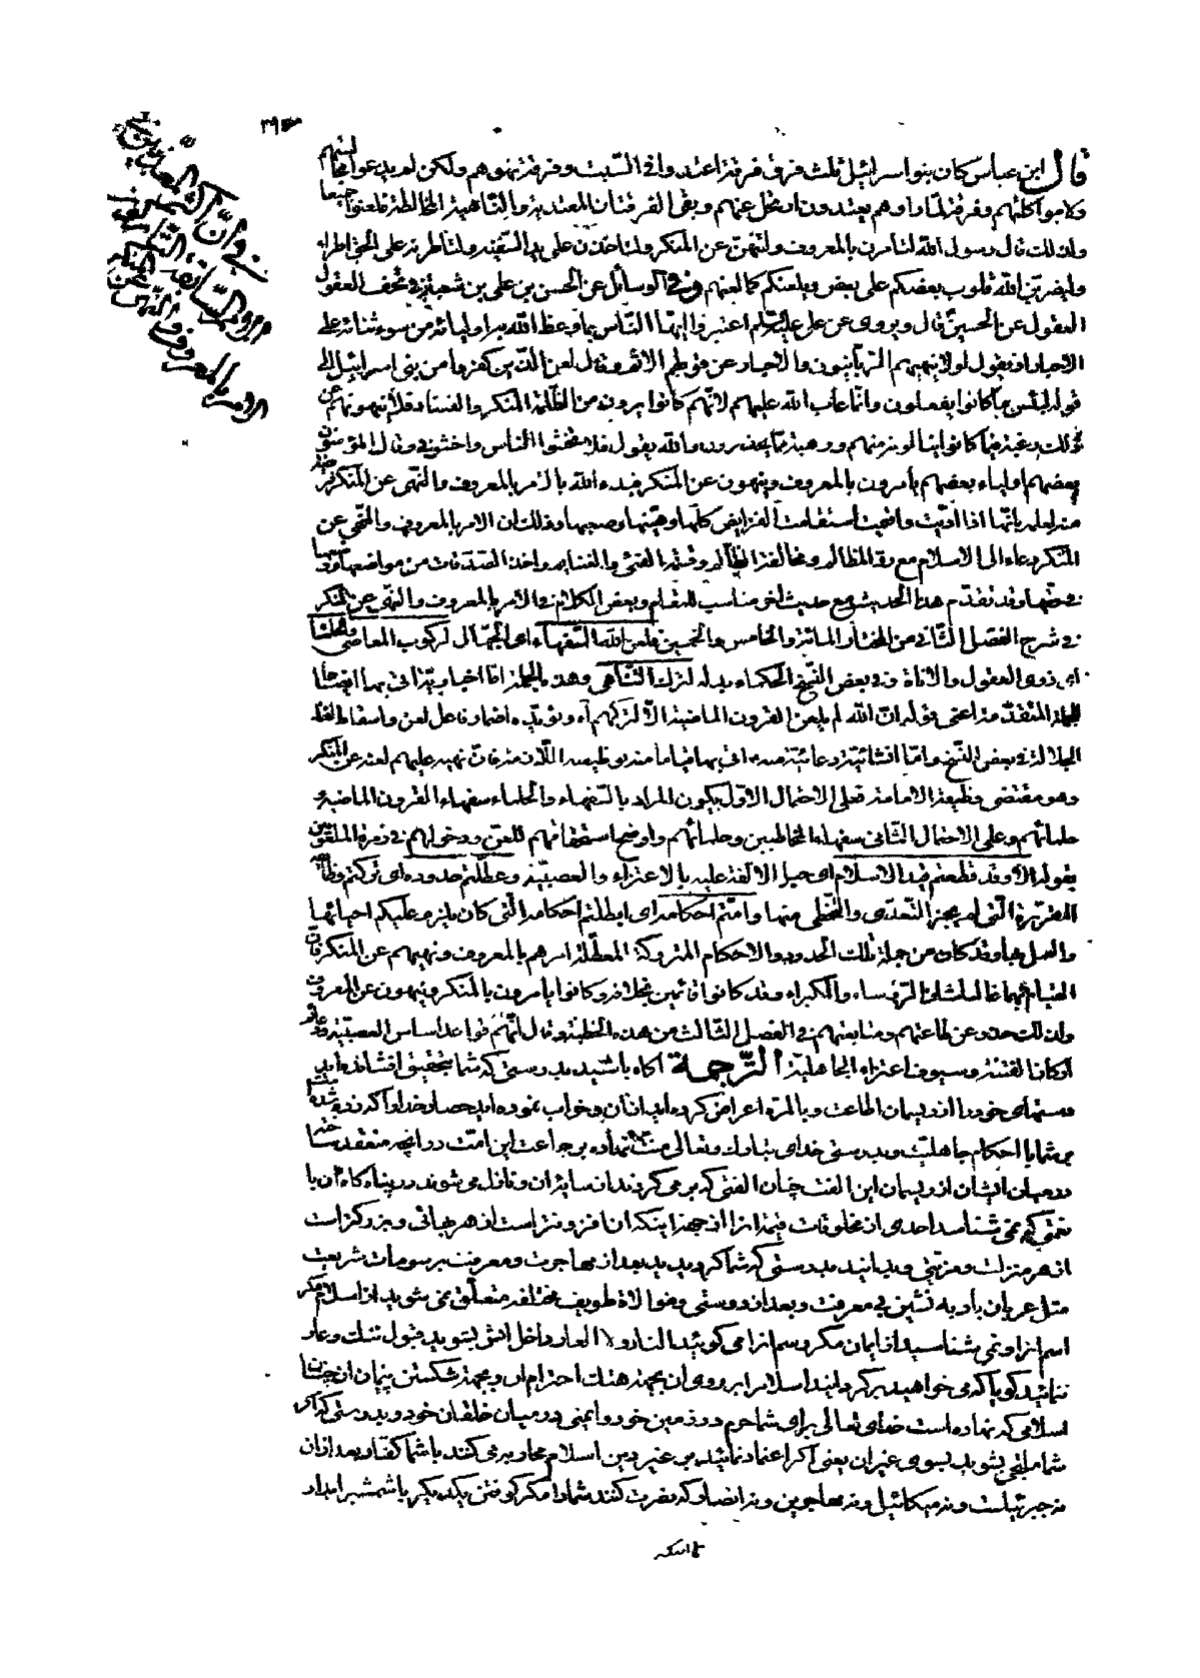 قال ابن عباس كان بنو اسرائيل ثلث فرق فرقة اعتدوا فى السّبت و فرقة نهوهم ولكن لم يدعوا مجالستهم
ولا مواكلتهم وفرقة لمّا راوهم يعتدون ارتحلوا عنهم وبقى الفرقتان المعتدية والنّاهية المخالطة فلعنوا جميعا
ولذلك قال رسول اللّه لتأمرن بالمعروف ولتنهن عن المنكر ولتاخذن على يد السّفيه ولتاطرنه على الحقّ اطرا
وليضربنّ اللّه قلوب بعضكم على بعض ويلعنكم كما لعنهم وفى الوسائل عن الحسن بن علي بن شعبة فى تحف العقول
العقول عن الحسين قال ويروى عن على عليه السلم اعتبروا ايّها النّاس بما وعظ اللّه به اوليائه من سوء ثنائه على
الاحبار اذ يقول لولا ينهيهم الرّبّانيون والاحبار عن قولهم الاثم وقال لعن الّذين كفروا من بنى اسرائيل الى
قوله لبئس ما كانوا يفعلون وانّما عاب اللّه عليهم لانّهم كانوا يرون من الظّلمة المنكر والفساد فلا ينهونهم عن
ذلك رغبة فيما كانوا ينالون منهم ورهبة ممّا يحذرون واللّه يقول فلا تخشوا النّاس واخشونى وقال المؤمنون
بعضهم اولياء بعضهم يأمرون بالمعروف وينهون عن المنكر فبدء اللّه بالامر بالمعروف والنّهى عن المنكر فريضة
منه لعلمه بانّها اذا ادّيت واقيمت استقامت الفرايض كلّها هيّنها وصعبها وذلك ان الامر بالمعروف والنّهى عن
المنكر دعاء الى الاسلام مع ردّ المظالم ومخالفة الظّالم وقسمة الفىء والغنايم واخذ الصّدقات من مواضعها ووضعها
فى حقّها وقد تقدّم هذا الحديث مع حديث آخر مناسب للمقام وبعض الكلام فى الامر بالمعروف والنّهى عن المنكر
فى شرح الفصل الثّانى من المختار المائة والخامس والخمسين فلعن اللّه السّفهاء اى الجهّال لركوب المعاصى والحلماء
اى ذوى العقول والاناة وفى بعض النّسخ الحكماء بدله لترك التّناهى وهذه الجملة امّا اخبارية اتى بها ايضاحا
للجملة المتقدّمة اعنى قوله انّ اللّه لم يلعن القرون الماضية الّا لتركهم آه ويؤيّده اضمار فاعل لعن واسقاط لفظ
الجلالة فى بعض النّسخ وامّا انشائيّة دعائيّة منه اتى بها
وهو مقتضى وظيفة الامامة فعلى الاحتمال الاوّل يكون المراد بالسّفهاء والحلماء سفهاء القرون الماضية و
حلمائهم وعلى الاحتمال الثّانى سفهاء المخاطبين وحلمائهم واوضح استحقاقهم للّعن ودخولهم فى زمرة الملعونين
بقوله الا وقد قطعتم قيد الاسلام اى حبل الالفة عليه بالاعتزاء والعصبيّة وعطّلتم حدوده اى تركتم
المقرّرة الّتى لم يجز التّعدّى والتّخطّى منها وامتّم احكامه اى ابطلتم احكامه الّتى كان يلزم عليكم احيائها
والعمل بها وقد كان من جملة تلك الحدود والاحكام المتروكة المعطّلة امرهم بالمعروف ونهيهم عن المنكر فانّ
والكبراء وقد كانوا قائمين بخلافه وكانوا يامرون بالمنكر وينهون عن المعروف
ولذلك حذر عن طاعتهم ومتابعتهم فى الفصل الثّالث من هذه الخطبة وقال انّهم قواعد اساس العصبيّة ودعائم
اركان الفتنة وسيوف اعتزاء الجاهليّة التّرجمة آكاه باشيد بدرستى كه شما بتحقيق افشانده ايد
دستهاى خود را از ريسمان اطاعت وبالمرّه اعراض كرده ايد از آن وخراب نموده ايد حصار خدا را كه زده شده
بر شما با احكام جاهليّت وبدرستى خداى تبارك وتعالى منّت نهاده بر جماعت اين امّت در آنچه منعقد ساخته
در ميان ايشان از ريسمان اين الفت چنان الفتى كه بر مى گردند در سايه آن و نازل مى شوند در پناه گاه آن با
نعمتى كه نمى شناسد احدى از مخلوقات قيمة آنرا از جهة اينكه آن افزونتر است از هر بهائى و بزرگتر است
از هر منزلت ومزيّتى وبدانيد بدرستى كه شما كرديديد بعد از مهاجرت ومعرفت برسومات شريعت
مثل عربان باديه نشين بى معرفت وبعد از دوستى وموالاة طوايف مختلفه متعلّق نمى شويد از اسلام مگر
اسم آنرا ونمى شناسيد از ايمان مگر رسم آنرا مى گوئيد النّار ولا العار داخل آتش بشويد قبول ننگ وعار
ننمائيد گويا كه مى خواهيد برگردانيد اسلام را بر روى آن بجهة هتك احترام آن وبجهة شكستن پيمان آن چنان
اسلامى كه نهاده است خداى تعالى براى شما حرم در زمين خود وايمنى در ميان خلقان خود وبدرستى كه اگر
شما ملتجى بشويد بسوى غير آن يعنى اگر اعتماد نمائيد بر غير دين اسلام محاربه مى كنند با شما كفّار بعد از آن
نه جبرئيلست ونه ميكائيل ونه مهاجرين ونه انصار كه نصرت كنند شما را مگر كوفتن يكديگر با شمشير آبدار
تا اينكه